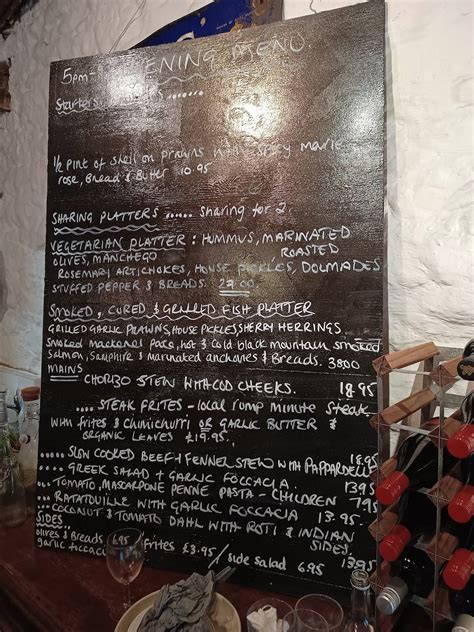 5pm- EVENING MENU
Starters
1/2 pint of shell on prawns with spicy marie
rose, Bread & Butter 10.95
SHARING PLATTERS ...... sharing for 2
VEGETARIAN PLATTER : HUMMUS, MARINATED
OLIVES, MANCHEGO ROASTED
ROSEMARY ARTICHOKES, HOUSE PICKLES, DOLMADES
STUFFED PEPPER & BREADS. 27.00
SMOKED, CURED & GRILLED FISH PLATTER
GRILLED GARLIC PRAWNS, HOUSE PICKLES, SHERRY HERRINGS
Smoked mackerel pate, hot & cold black mountain smoked
Salmon, Samphire & marinated anchovies & Breads. 3800
MAINS
CHORIZO STEW WITH COD CHEEKS. 18.95
.... STEAK FRITES - local rump minute steak
with frites & chimichurri or GARLIC BUTTER &
ORGANIC LEAVES £19.95.
.... SLOW COOKED BEEF & FENNEL STEW WITH PAPPARDELLE 18.95
.. GREEK SALAD + GARLIC FOCACCIA. 13.95
.. TOMATO, MASCARPONE PENNE PASTA - CHILDREN 7.95
... RATATOUILLE WITH GARLIC FOCACCIA 13.95.
.. COCONUT & TOMATO DAHL WITH ROTI & INDIAN
SIDES. 13.95
SIDES
olives & Breads 6.95 Frites £3.95/ side salad 6.95
garlic foccacia